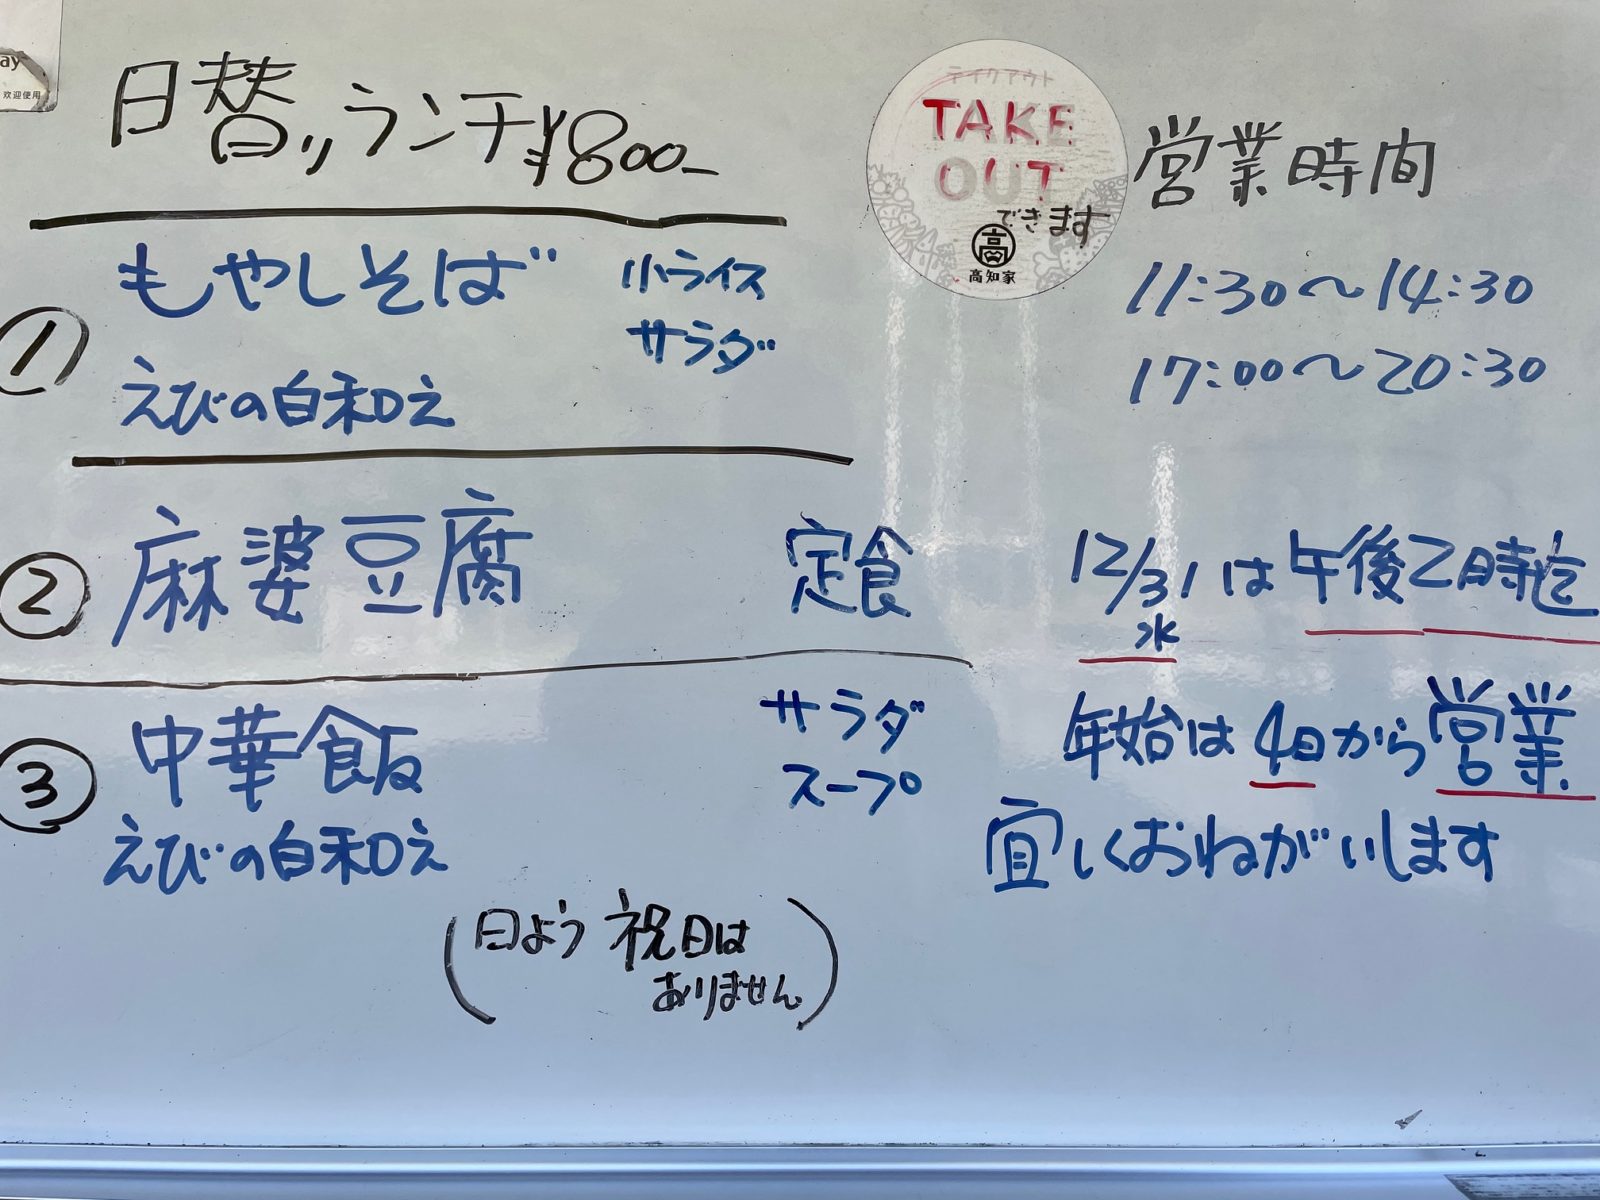 ay
欢迎使用
日替りランチ¥800-
①
もやしそば 小ライス
サラダ
えびの白和え
② 麻婆豆腐 定食
③ 中華飯 サラダ
スープ
えびの白和え
(日よう 祝日は
ありません)
テイクアウト
TAKE
OUT
できます
高
高知家
営業時間
11:30〜14:30
17:00〜20:30
12/31は午後2時迄
水
年始は4日から営業
宜しくおねがいします